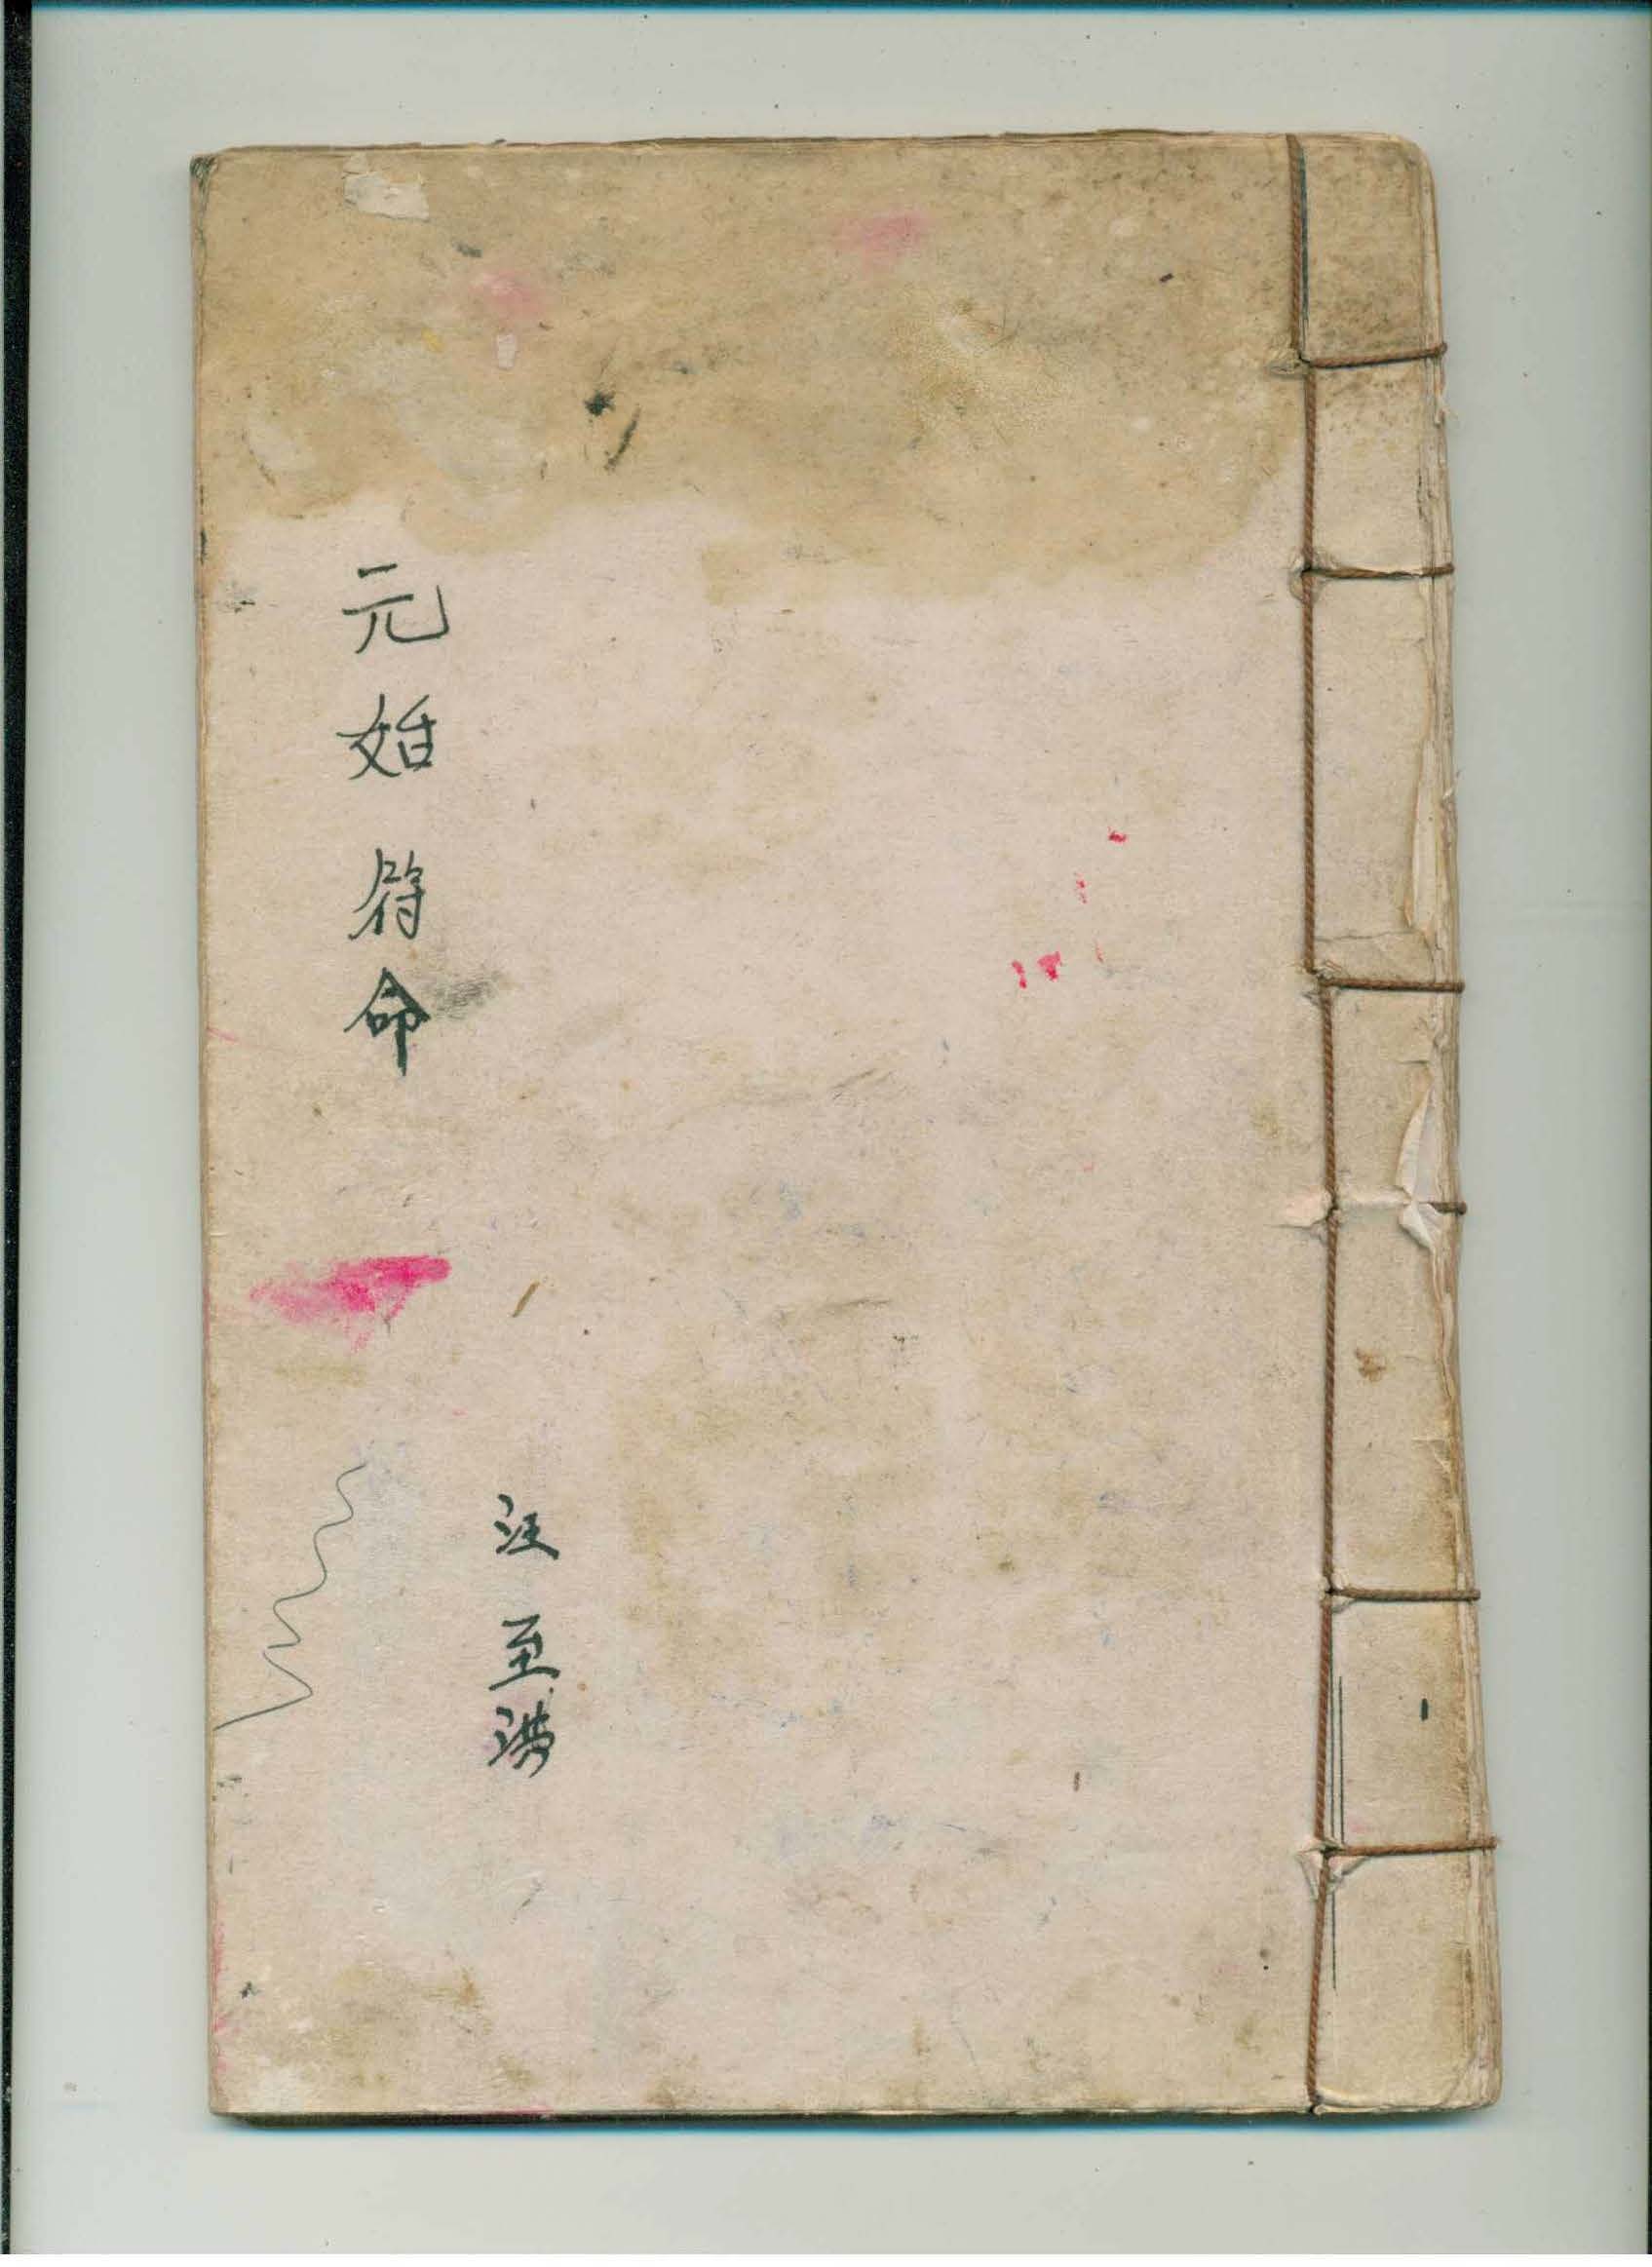 元始符命
汪至